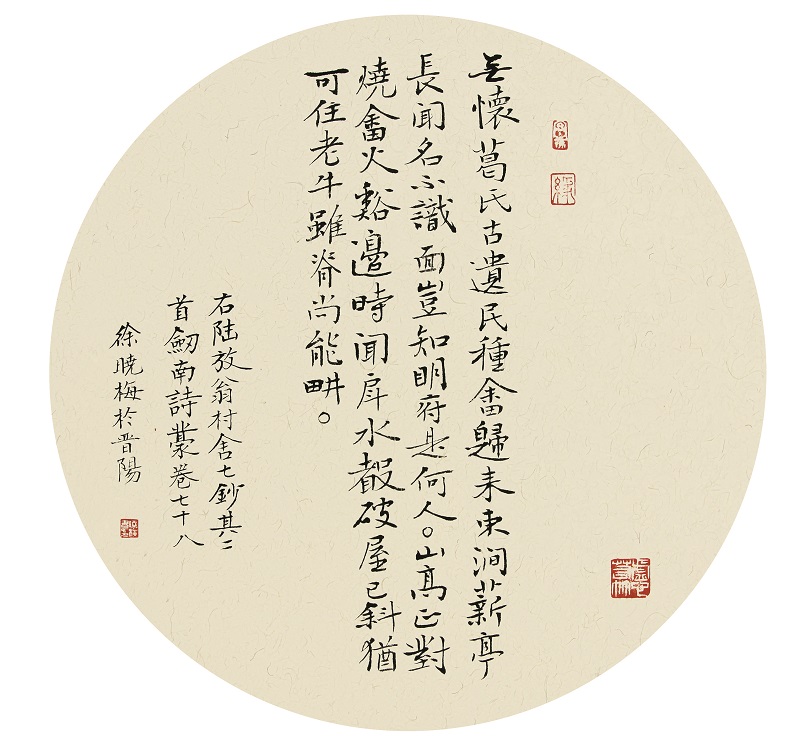 无懷葛氏古遺民種畬歸来東澗薪亭
長聞名不識面豈知明府是何人。山高正對
燒畬火谿邊時聞戽水聲破屋已斜猶
可住老牛雖瘠尚能畊。
右陸放翁村舍七鈔其二
首劒南詩稾卷七十八
徐曉梅於晋陽